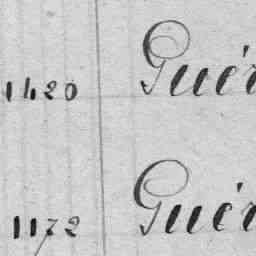 1420 Guér
1172 Guér